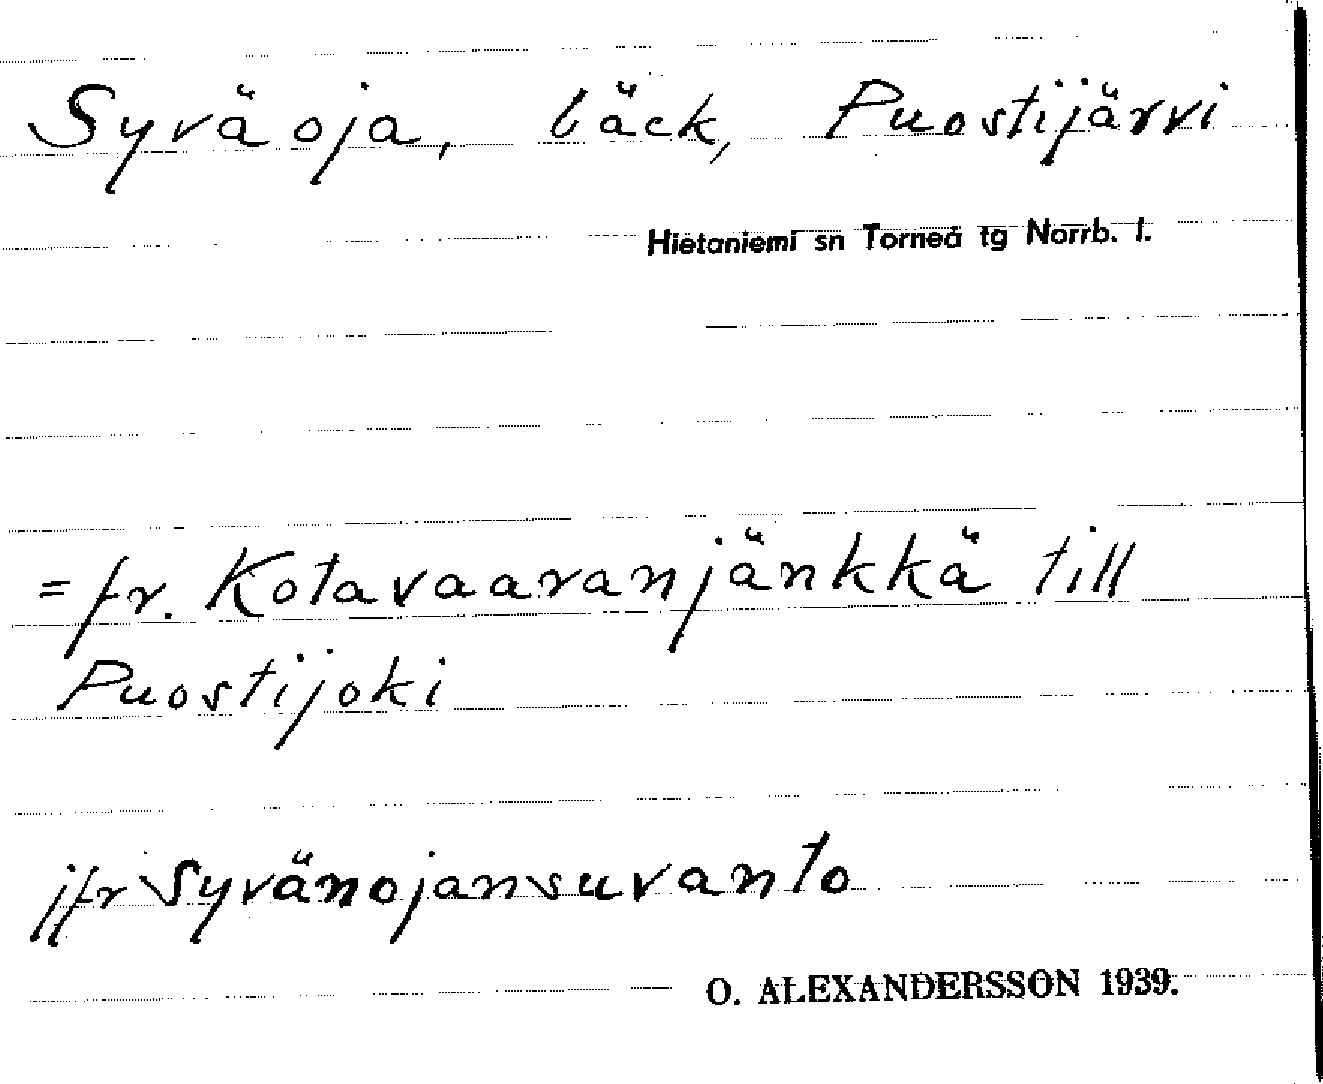 Syväoja, bäck, Puostijärvi
Hietaniemi sn Torneå tg Norrb. l.
= fr. Kotavaaranjänkkä till
Puostijoki
jfr Syvänojansuvanto
O. ALEXANDERSSON 1939.